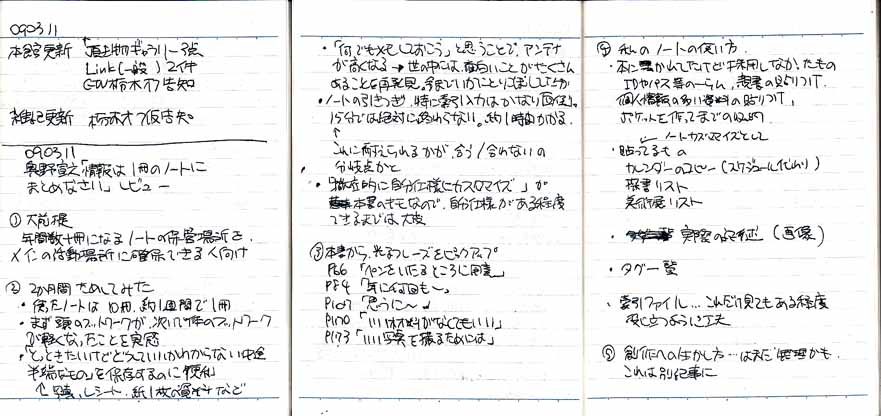 090311
本館更新 頂き物ギャラリー3点
Link(一般)2件
GW栃木オフ告知
雑記更新 栃木オフ仮告知
090311
奥野宣之「情報は1冊のノートに
まとめなさい」レビュー
① 大前提
年間数十冊になるノートの保管場所を、
メインの活動場所に確保できる人向け
② 2か月間ためしてみた
・使ったノートは10冊、約1週間で1冊
・まず頭のフットワークが、次いで体のフットワーク
が軽くなったことを実感
・「とっときたいけどどうしていいかわからない中途
半端なもの」を保存するのに便利
写真、レシート、紙1枚の資料など
・「何でもメモしておこう」と思うことで、アンテナ
が高くなる→世の中には、面白いことがたくさん
あることを再発見。今までいかにとりこぼしてたか
・ノートの引きつぎ、特に索引入力はかなり面倒。
15分では絶対に終わらない。約1時間かかる。
↑
これに耐えられるかが、合う/合わないの
分岐点かと
・「徹底的に自分仕様にカスタマイズ」が
本書のキモなので、自分仕様がある程度
できるまでは大変
③ 本書から、光るフレーズをピックアップ
P66 「ペンをいたるところに用意」
P84 「耳に何回も〜」
P107 「思うに〜」
P170 「いい材料がなくてもいい」
P173 「いい写真を撮るためには」
④ 私のノートの使い方
・本に書かれてたけど採用しなかったもの
IDやパス等の、裏書の貼りつけ
個人情報の多い資料の貼りつけ、
ポケットを作ってまでの収納
ノートカスタマイズとして
・貼ってるもの
カレンダーのコピー(スケジュール代わり)
探書リスト
美術展リスト
・実際の記述(画像)
・タグ一覧
・索引ファイル…これだけ見てもある程度
役に立つように工夫
⑤ 創作への生かし方…はまだ無理かも。
これは別記事に